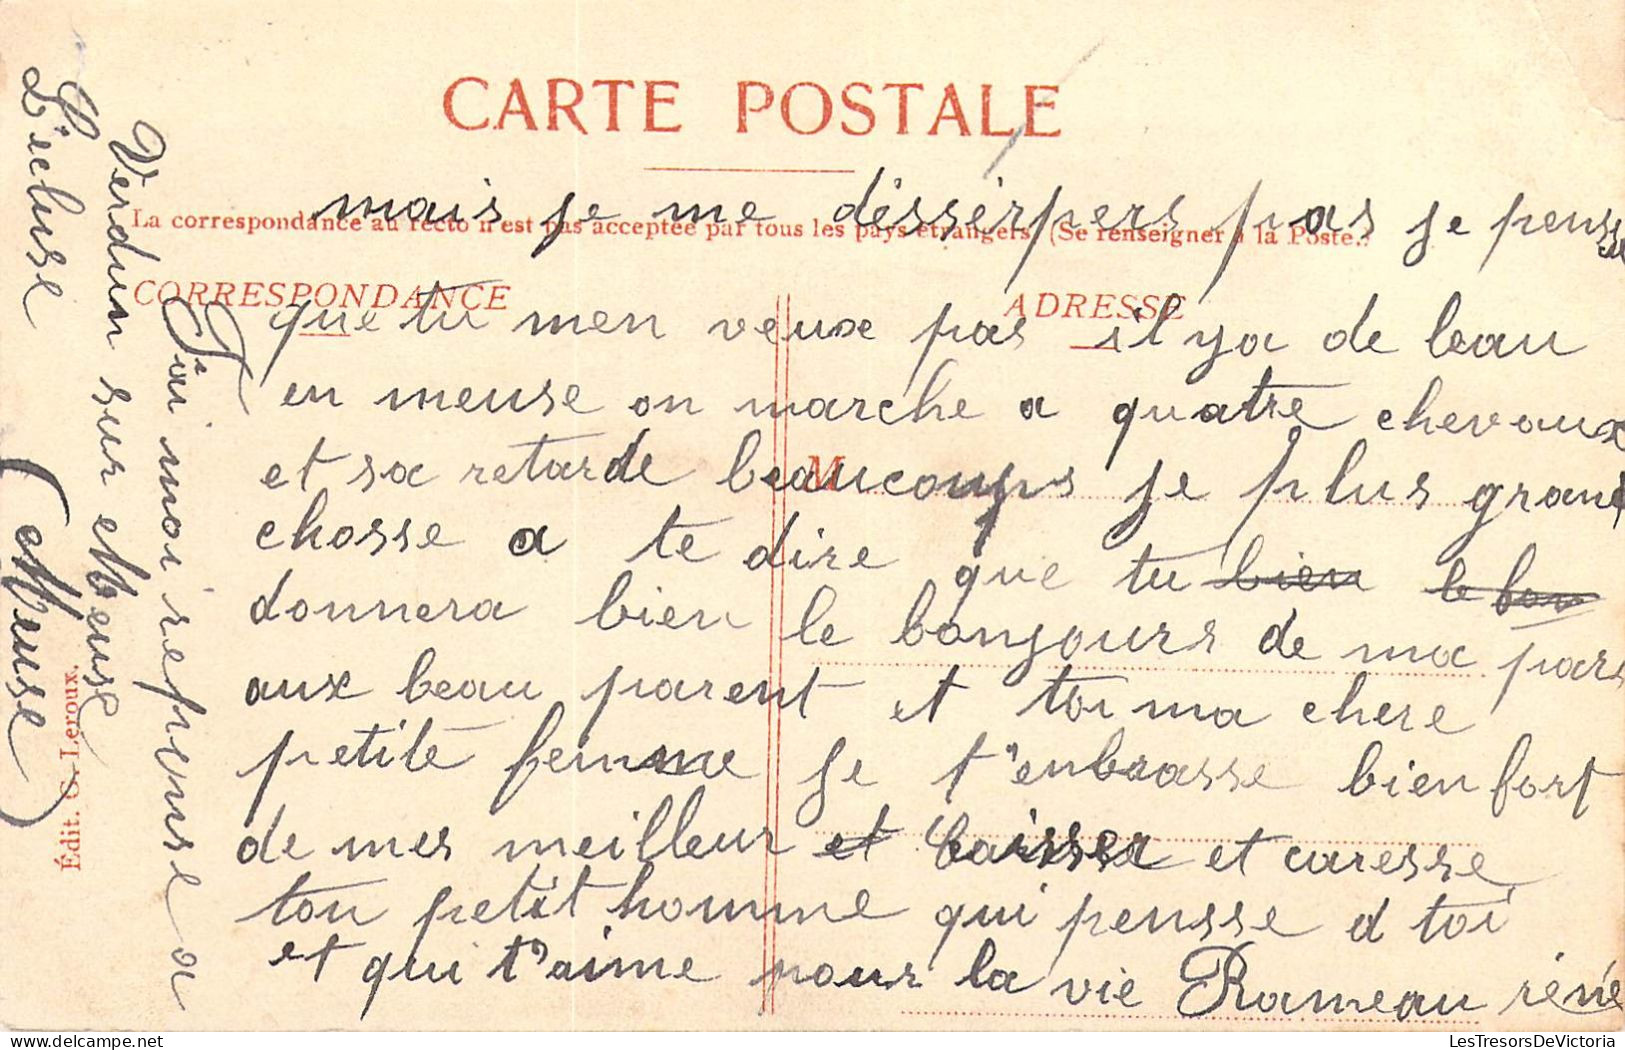 CARTE POSTALE
La correspondance au recto n'est pas acceptée par tous les pays étrangers. (Se renseigner à la Poste.)
CORRESPONDANCE
ADRESSE
M
mais je me dessérpers pas je pensse
que tu men veux pas il ya de leau
en meuse on marche a quatre chevaux
et sa retarde beaucoups je plus grand
chosse a te dire que tu bien le bon
donnera bien le bonjours de ma pars
aux beau parent et toi ma chere
petite femme je t'enbrasse bien fort
de mes meilleur et baisser et caresse
ton petit homme qui pensse a toi
et qui t'aime pour la vie Rameau réné
Fai moi reponse a
Verdun sur Meuse
L'ecluse
(Meuse)
Édit. G. Leroux.
LesTresorsDeVictoria